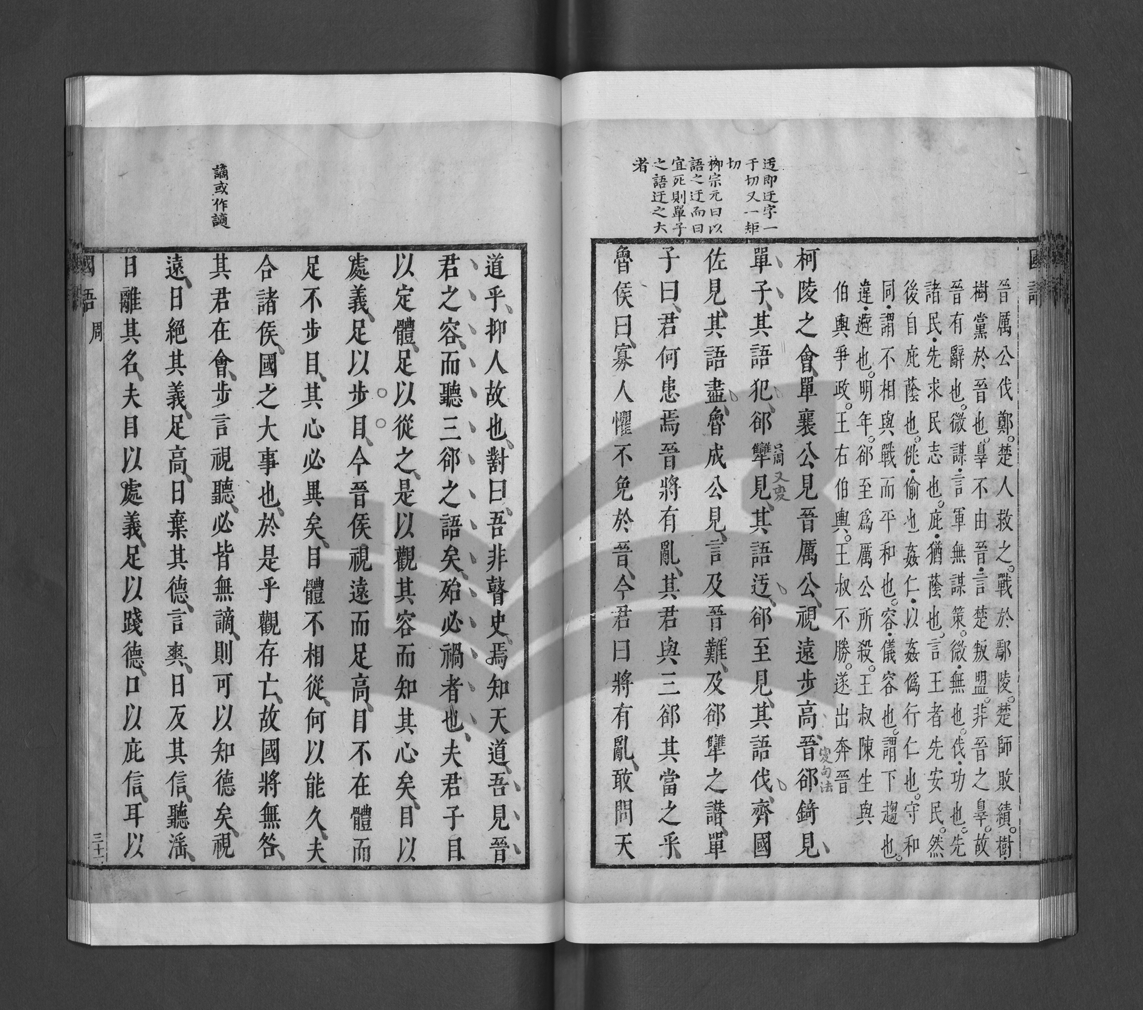 迃即迂字一
于切又一矩
切
柳宗元曰以
語之迂而曰
宜死則單子
之語迂之大
者
國語
晉厲公伐鄭楚人救之戰於鄢陵楚師敗績樹
樹黨於晉也辠不由晉言楚叛盟非晉之辠故
晉有辭也微謀言軍無謀策微無也伐功也先
諸民先求民志也庇猶蔭也言王者先安民然
後自庇蔭也佻偷也姦仁以姦偽行仁也守和
同謂不相與戰而平和也容儀容也謂下趨也
違避也明年郤至爲厲公所殺王叔陳生與
伯輿爭政王右伯輿王叔不勝遂出奔晉
柯陵之會單襄公見晉厲公視遠步高晉郤錡見
變句法
單子其語犯郤犨見其語迃郤至見其語伐齊國
又變
佐見其語盡魯成公見言及晉難及郤犨之譖單
子曰君何患焉晉將有亂其君與三郤其當之乎
魯侯曰寡人懼不免於晉今君曰將有亂敢問天
道乎抑人故也對曰吾非瞽史焉知天道吾見晉
君之容而聽三郤之語矣殆必禍者也夫君子目
以定體足以從之是以觀其容而知其心矣目以
處義足以步目今晉侯視遠而足高目不在體而
足不步目其心必異矣目體不相從何以能久夫
合諸侯國之大事也於是乎觀存亡故國將無咎
其君在會步言視聽必皆無謫則可以知德矣視
謫或作讁
遠日絕其義足高日棄其德言爽日反其信聽滛
日離其名夫目以處義足以踐德口以庇信耳以
國語 周
三十一